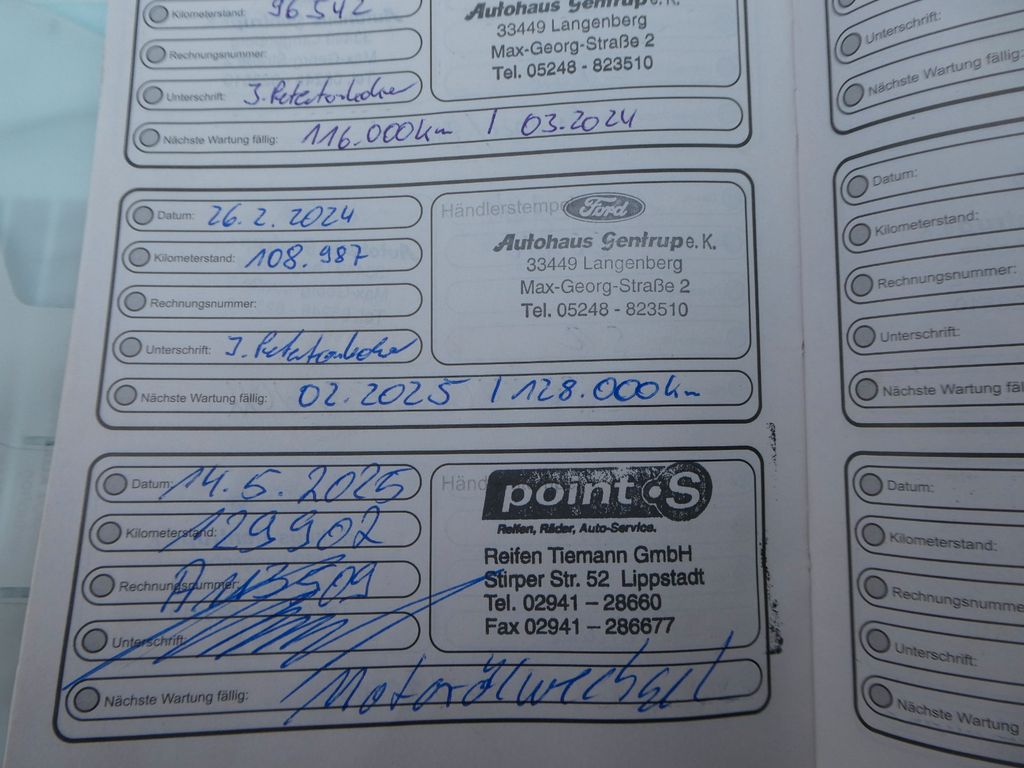 Kilometerstand: 96 542
Rechnungsnummer:
Unterschrift:
Nächste Wartung fällig: 116.000km / 03.2024
Autohaus Gentrup e.K.
33449 Langenberg
Max-Georg-Straße 2
Tel. 05248 - 823510
Datum: 26.2.2024
Kilometerstand: 108.987
Rechnungsnummer:
Unterschrift:
Nächste Wartung fällig: 02.2025 / 128.000km
Händlerstemp
Ford
Autohaus Gentrup e.K.
33449 Langenberg
Max-Georg-Straße 2
Tel. 05248 - 823510
Datum: 14.5.2025
Kilometerstand: 129902
Rechnungsnummer:
Unterschrift:
Nächste Wartung fällig: Motorölwechsel
Händ
point S
Reifen, Räder, Auto-Service.
Reifen Tiemann GmbH
Stirper Str. 52 Lippstadt
Tel. 02941 – 28660
Fax 02941 – 286677
Unterschrift:
Nächste Wartung fällig:
Datum:
Kilometerstand:
Rechnungsnummer:
Unterschrift:
Nächste Wartung fäl
Datum:
Kilometerstand:
Rechnungsnumme
Unterschrift:
Nächste Wartung